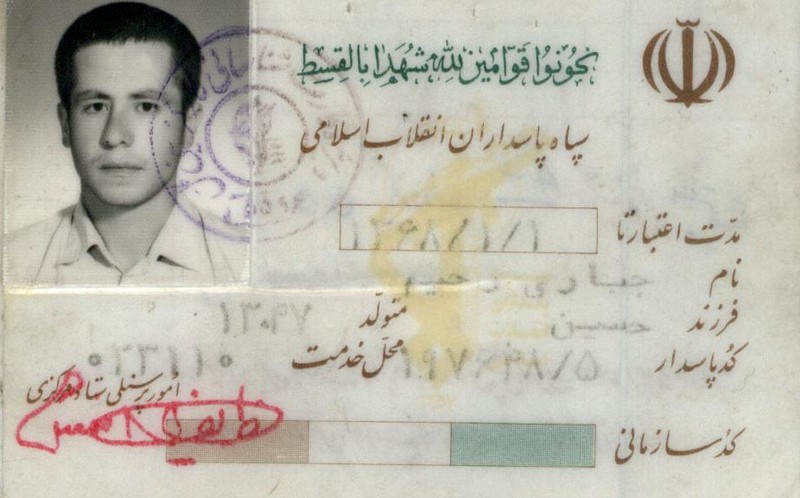 کونوا قوامین لله شهدا بالقسط
سپاه پاسداران انقلاب اسلامی
مدّت اعتبار تا ۱۳۶۸/۱/۱
نام جباری رحیم
فرزند حسین متولّد ۱۳۰۴۷
کُد پاسدار ۱۹۷۶۳۸/۵ محلّ خدمت ۰۲۳۱۱۰
امور پرسنلی ستاد مرکزی
کُد سازمانی